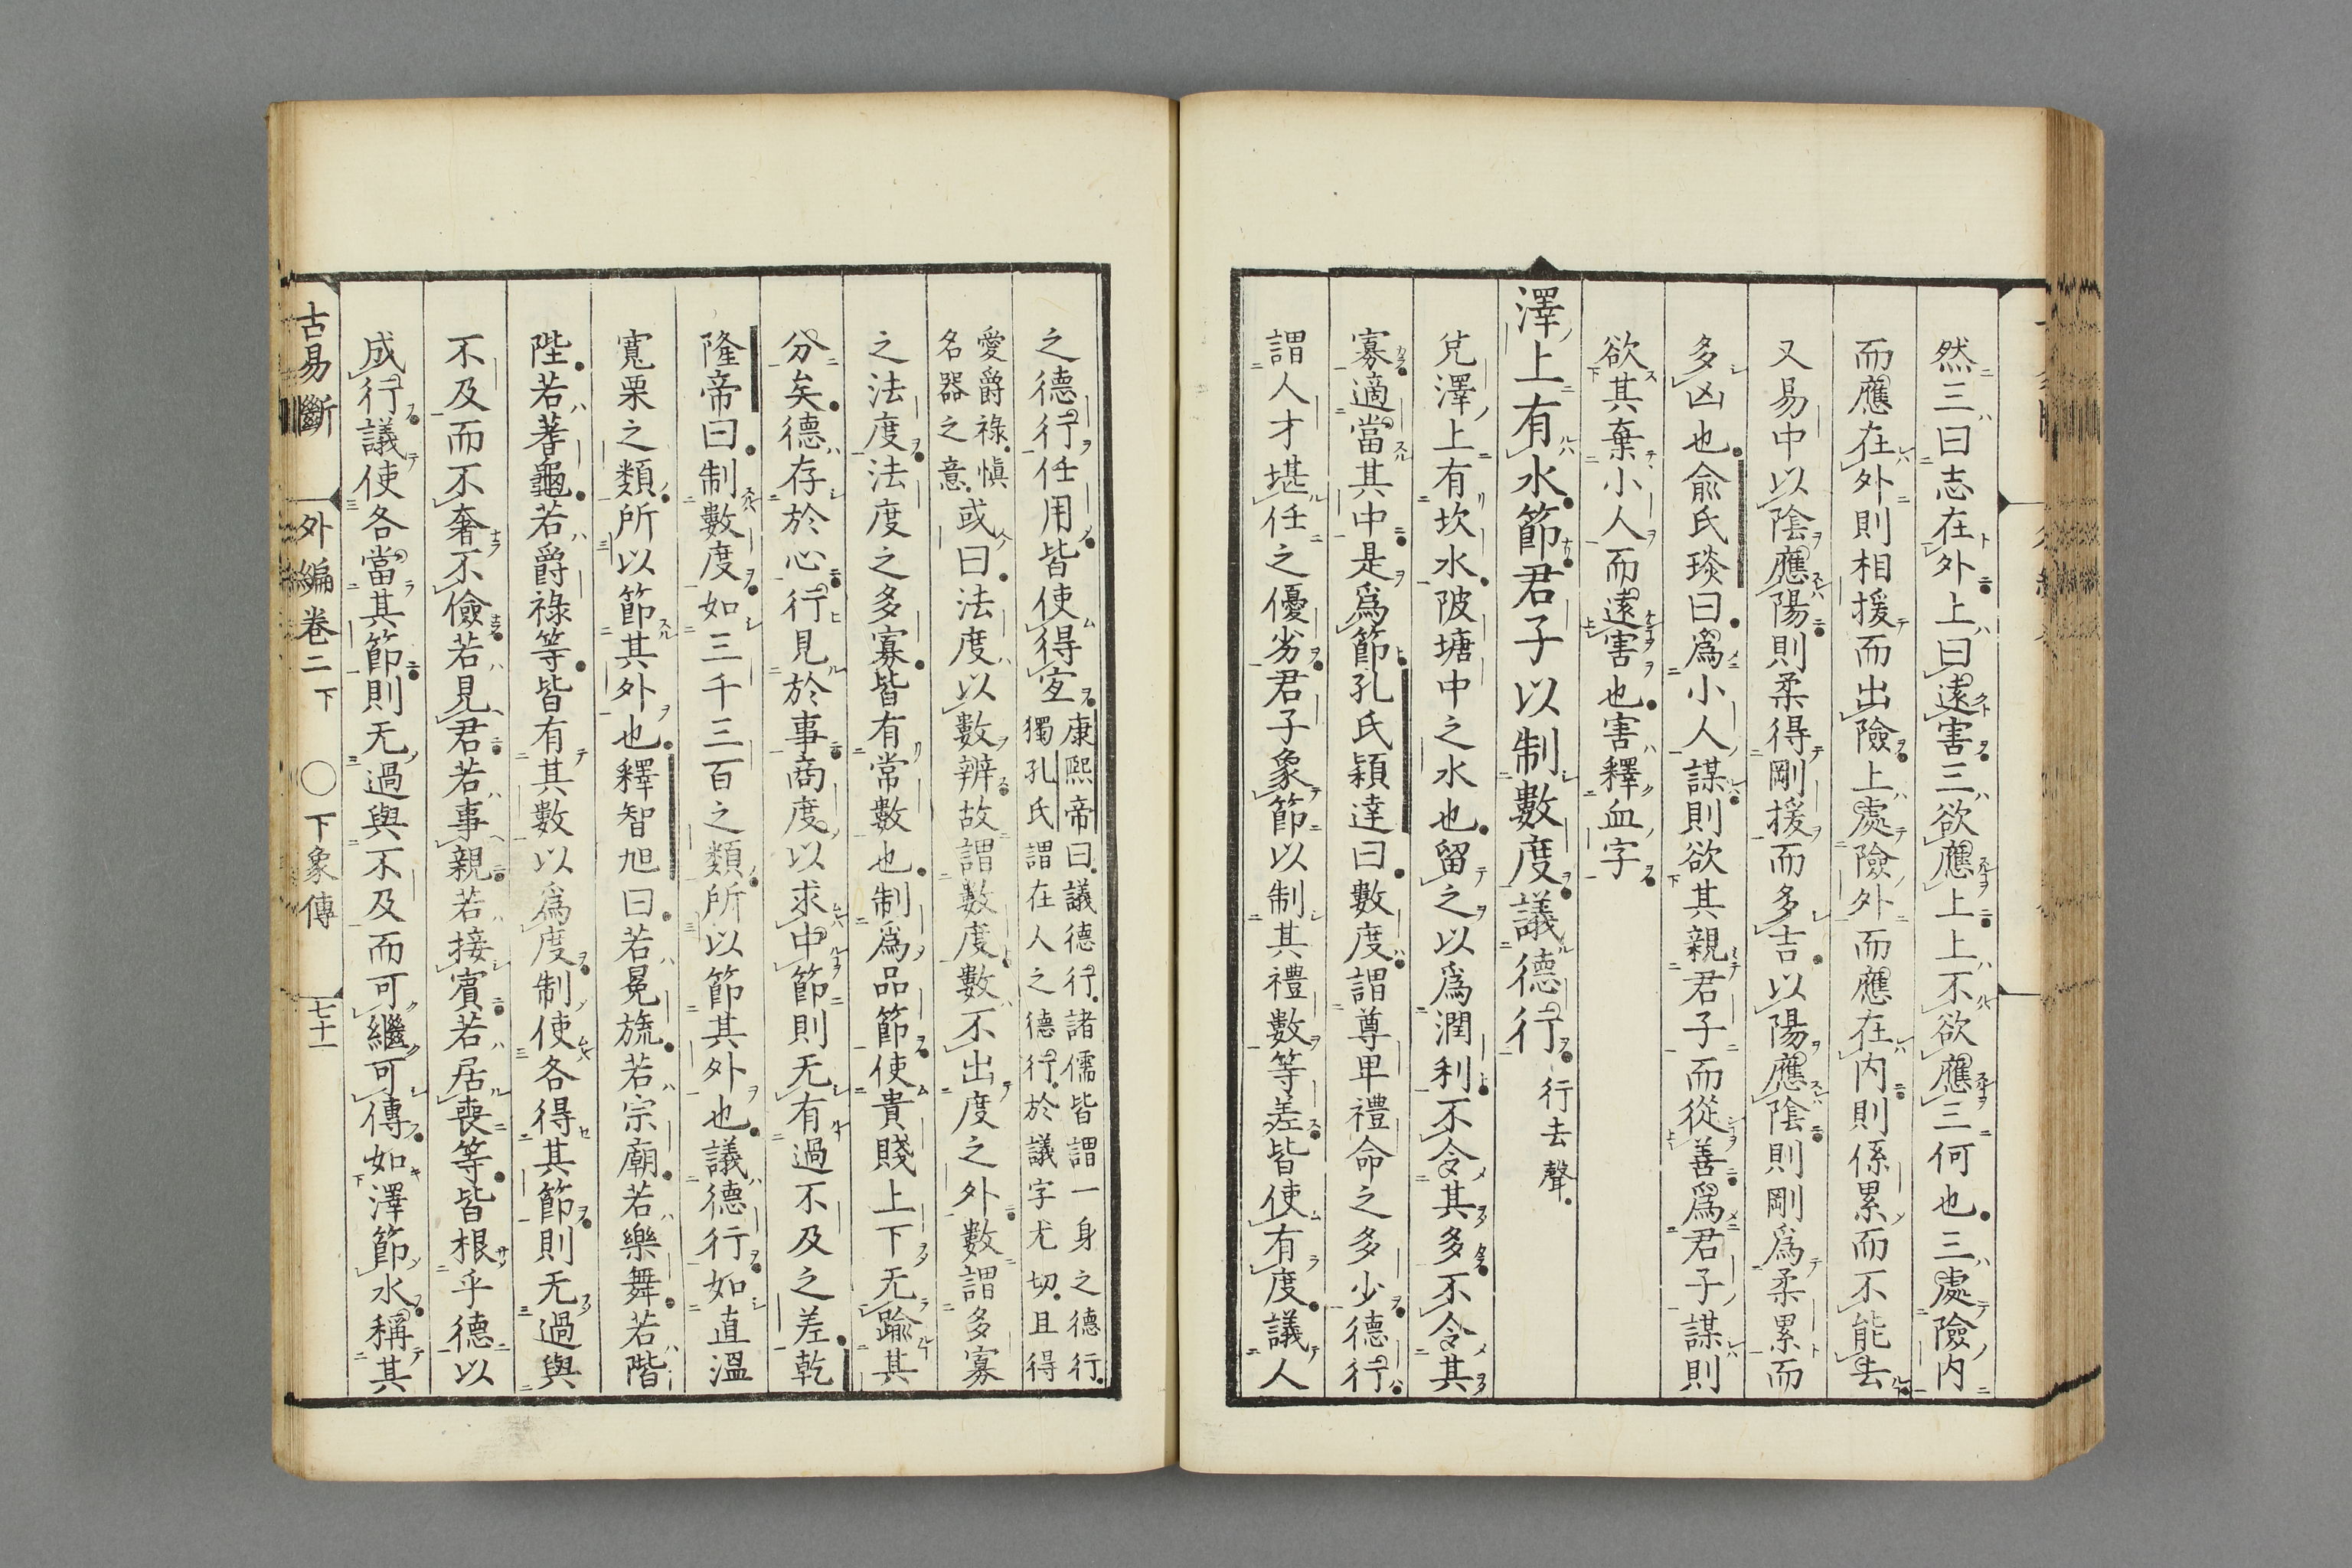 然三曰志在外上曰遠害三欲應上上不欲應三何也三處險内
而應在外則相援而出險上處險外而應在内則係累而不能去
又易中以陰應陽則柔得剛援而多吉以陽應陰則剛爲柔累而
多凶也兪氏琰曰爲小人謀則欲其親君子而從善爲君子謀則
欲其棄小人而遠害也害釋血字
澤上有水節君子以制數度議德行 行去聲
兌澤上有坎水陂塘中之水也留之以爲潤利不令其多不令其
寡適當其中是爲節孔氏穎達曰數度謂尊卑禮命之多少德行
謂人才堪任之優劣君子象節以制其禮數等差皆使有度議人
之德行任用皆使得宜 康熙帝曰議德行諸儒皆謂一身之德行
獨孔氏謂在人之德行於議字尤切且得
愛爵祿愼
名器之意 或曰法度以數辨故謂數度數不出度之外數謂多寡
之法度法度之多寡皆有常數也制爲品節使貴賤上下无踰其
分矣德存於心行見於事商度以求中節則无有過不及之差乾
隆帝曰制數度如三千三百之類所以節其外也議德行如直溫
寬栗之類所以節其外也釋智旭曰若冕旒若宗廟若樂舞若階
陛若蓍龜若爵祿等皆有其數以爲度制使各得其節則无過與
不及而不奢不儉若見君若事親若接賓若居喪等皆根乎德以
成行議使各當其節則无過與不及而可繼可傳如澤節水稱其
古易斷 外編卷二下 ○下象傳 七十一